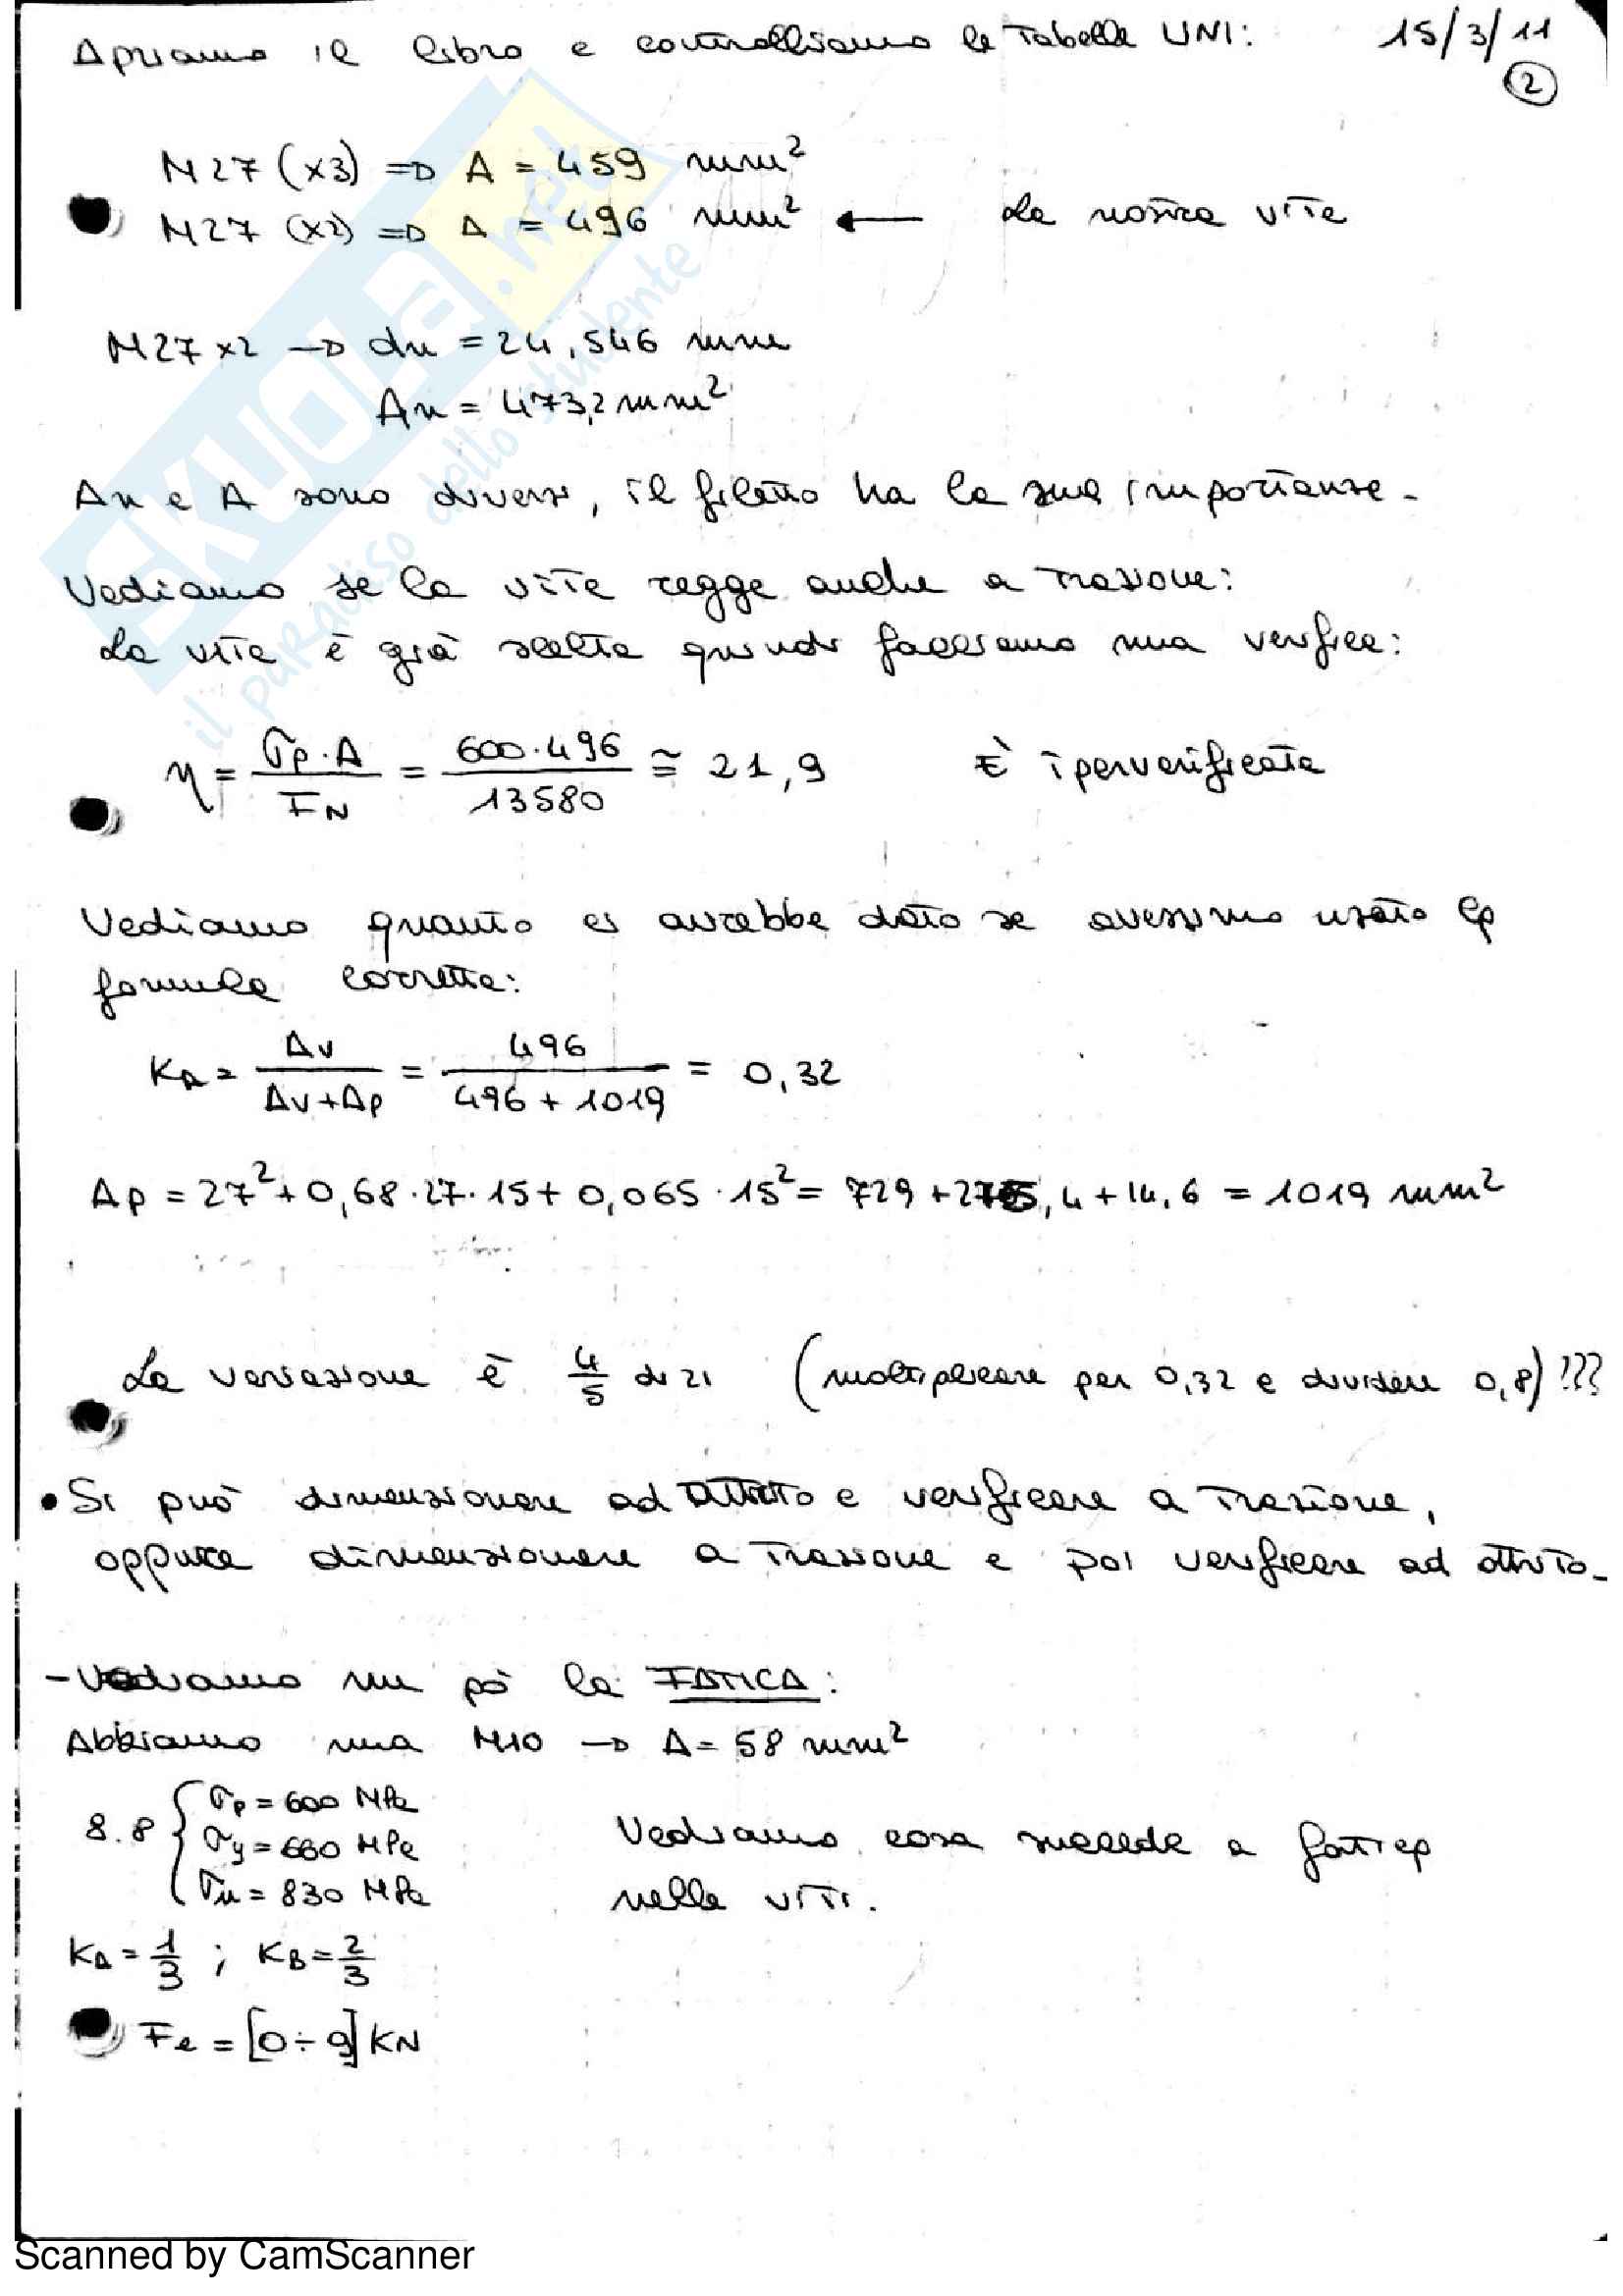 Apriamo il libro e controlliamo le tabelle UNI: 15/3/11
2
M27 (x3) => A = 459 mm²
M27 (x2) => A = 496 mm² ← La nostra vite
M27 x2 → dn = 24,546 mm
An = 473,2 mm²
An e A sono diversi, il filetto ha la sua importanza.
Vediamo se la vite regge anche a trazione:
La vite è già scelta quindi facciamo una verifica:
η = σp·A / FN = 600·496 / 13580 ≅ 21,9 È iperverificata
Vediamo quanto ci avrebbe dato se avessimo usato la
formula corretta:
KA = Av / Av+Ap = 496 / 496 + 1019 = 0,32
Ap = 27² + 0,68·27·15 + 0,065·15² = 729 + 275,4 + 14,6 = 1019 mm²
La variazione è 4/5 di 21 (moltiplicare per 0,32 e dividere 0,8) ???
• Si può dimensionare ad attrito e verificare a trazione,
oppure dimensionare a trazione e poi verificare ad attrito.
- Vediamo un pò la FATICA:
Abbiamo una M10 → A = 58 mm²
8.8 { σp = 600 MPa
σy = 660 MPa
σu = 830 MPa
Vediamo cosa succede a fatica
nelle viti.
KA = 1/3 ; KB = 2/3
Fe = [0÷9] KN
SKUOLA.net
il paradiso dello studente
Scanned by CamScanner